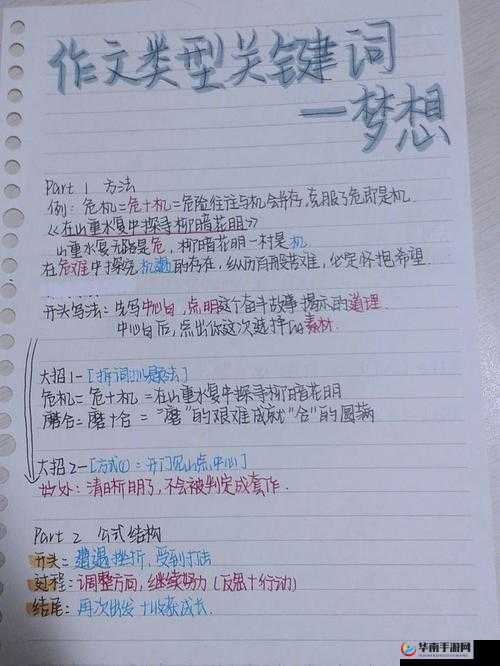 作文类型关键词
—梦想
Part 1 方法
例：危机=危+机=危险往往与机会并存，克服了危即是机.
《在山重水复中探寻柳暗花明》
山重水复无路是危，柳暗花明一村是机
在危难中探究机遇的存在，纵历百般苦难，必定怀抱希望.
开头写法：先写中心句，点明这个奋斗故事揭示的道理.
中心句后，点出你这次选择的素材.
大招1-[拆词拟题法]
危机=危+机=在山重水复中探寻柳暗花明
磨合=磨+合="磨"的艰难成就"合"的圆满
大招2-[方式①=开门见山点中心]
妙处：清晰明了，不会被判定成套作.
Part 2 公式结构
开头：遭遇挫折，受到打击
过程：调整方向，继续努力(反思+行动)
结尾：再次出发+收获成长.
华南手游网